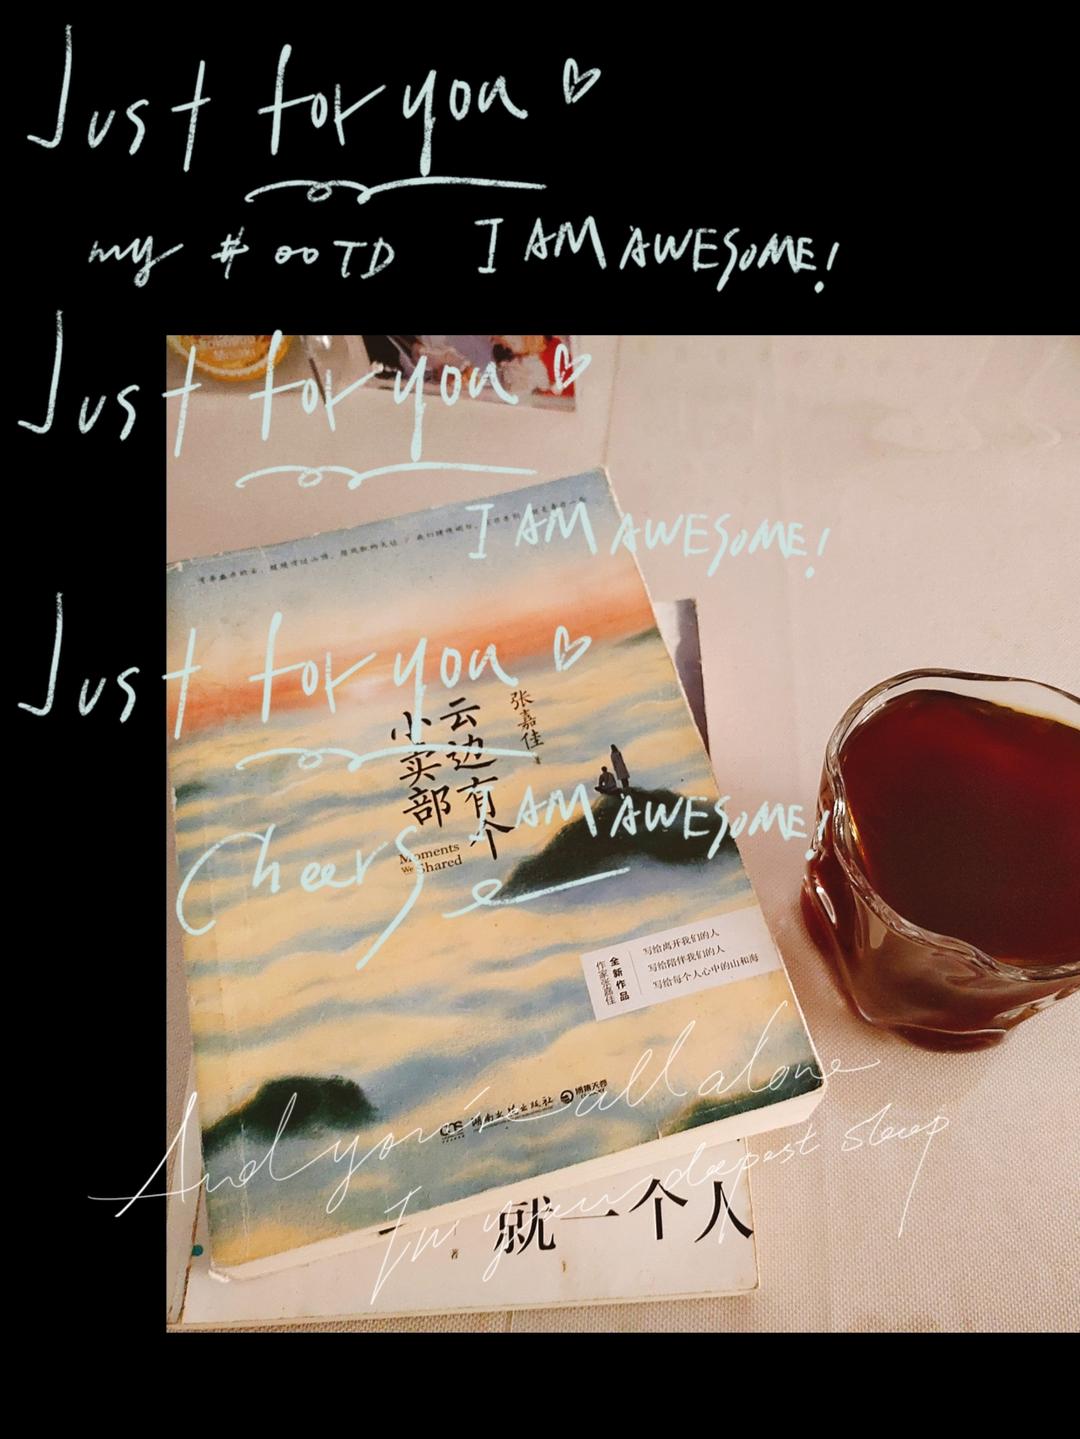 Just for you
my #OOTD I AM AWESOME!
Just for you
I AM AWESOME!
Just for you
张嘉佳
云边有个
小卖部
I AM AWESOME!
Moments
We Shared
Cheers
写给离开我们的人
写给陪伴我们的人
写给每个人心中的山和海
全新作品
作家张嘉佳
And you're all alone
湖南文艺出版社
博集天卷
In your deepest sleep
就一个人
著